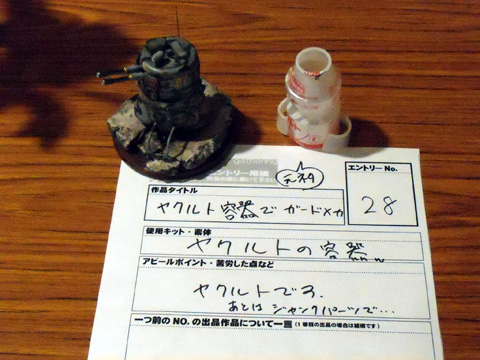 エントリー用紙
元ネタ
作品タイトル
エントリーNo.
ヤクルト容器でガードメカ
28
使用キット・素体
ヤクルトの容器
アピールポイント・苦労した点など
ヤクルトです
あとはジャンクパーツで…
一つ前のNO.の出品作品について一言(1番目の出品の場合は結構です)